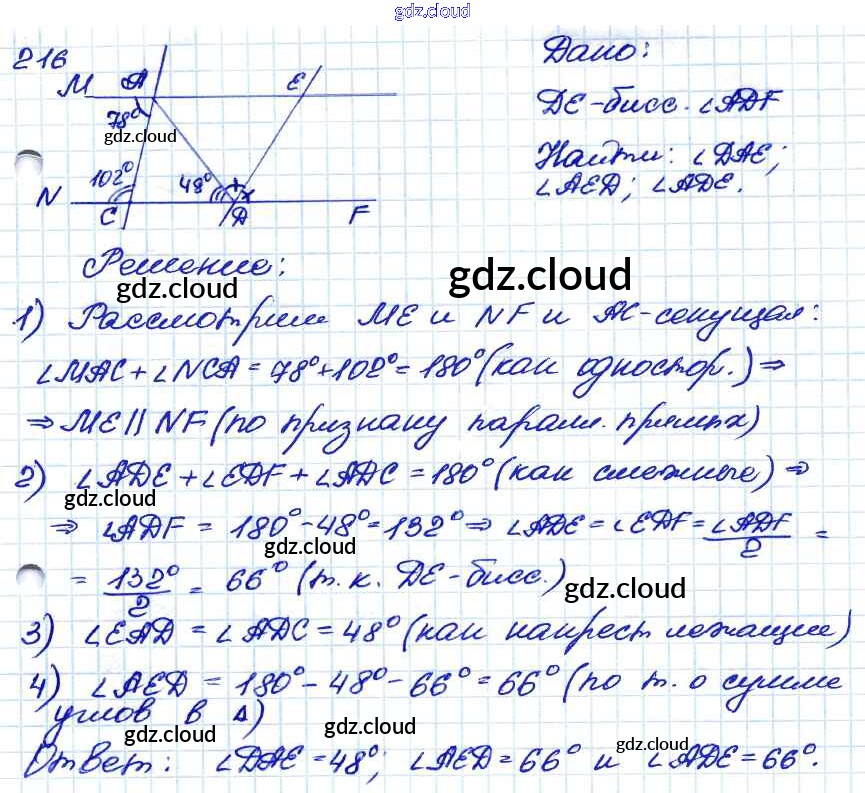 gdz.cloud
216
Дано:
M A E
DE-бисс. ∠ADF
78°
gdz.cloud
Найти: ∠DAE;
102° 48° x x
∠AED; ∠ADE.
N C D F
Решение:
gdz.cloud
gdz.cloud
1) Рассмотрим ME и NF и AC-секущая:
∠MAC + ∠NCA = 78° + 102° = 180° (как одностор.) ⇒
⇒ ME || NF (по признаку паралл. прямых)
2) ∠ADE + ∠EDF + ∠ADC = 180° (как смежные) ⇒
gdz.cloud
⇒ ∠ADF = 180° - 48° = 132° ⇒ ∠ADE = ∠EDF = ∠ADF/2 =
gdz.cloud
= 132°/2 = 66° (т.к. DE-бисс.)
gdz.cloud
3) ∠EAD = ∠ADC = 48° (как накрест лежащие)
4) ∠AED = 180° - 48° - 66° = 66° (по т. о сумме
углов в Δ)
gdz.cloud
gdz.cloud
gdz.cloud
Ответ: ∠DAE = 48°; ∠AED = 66° и ∠ADE = 66°.